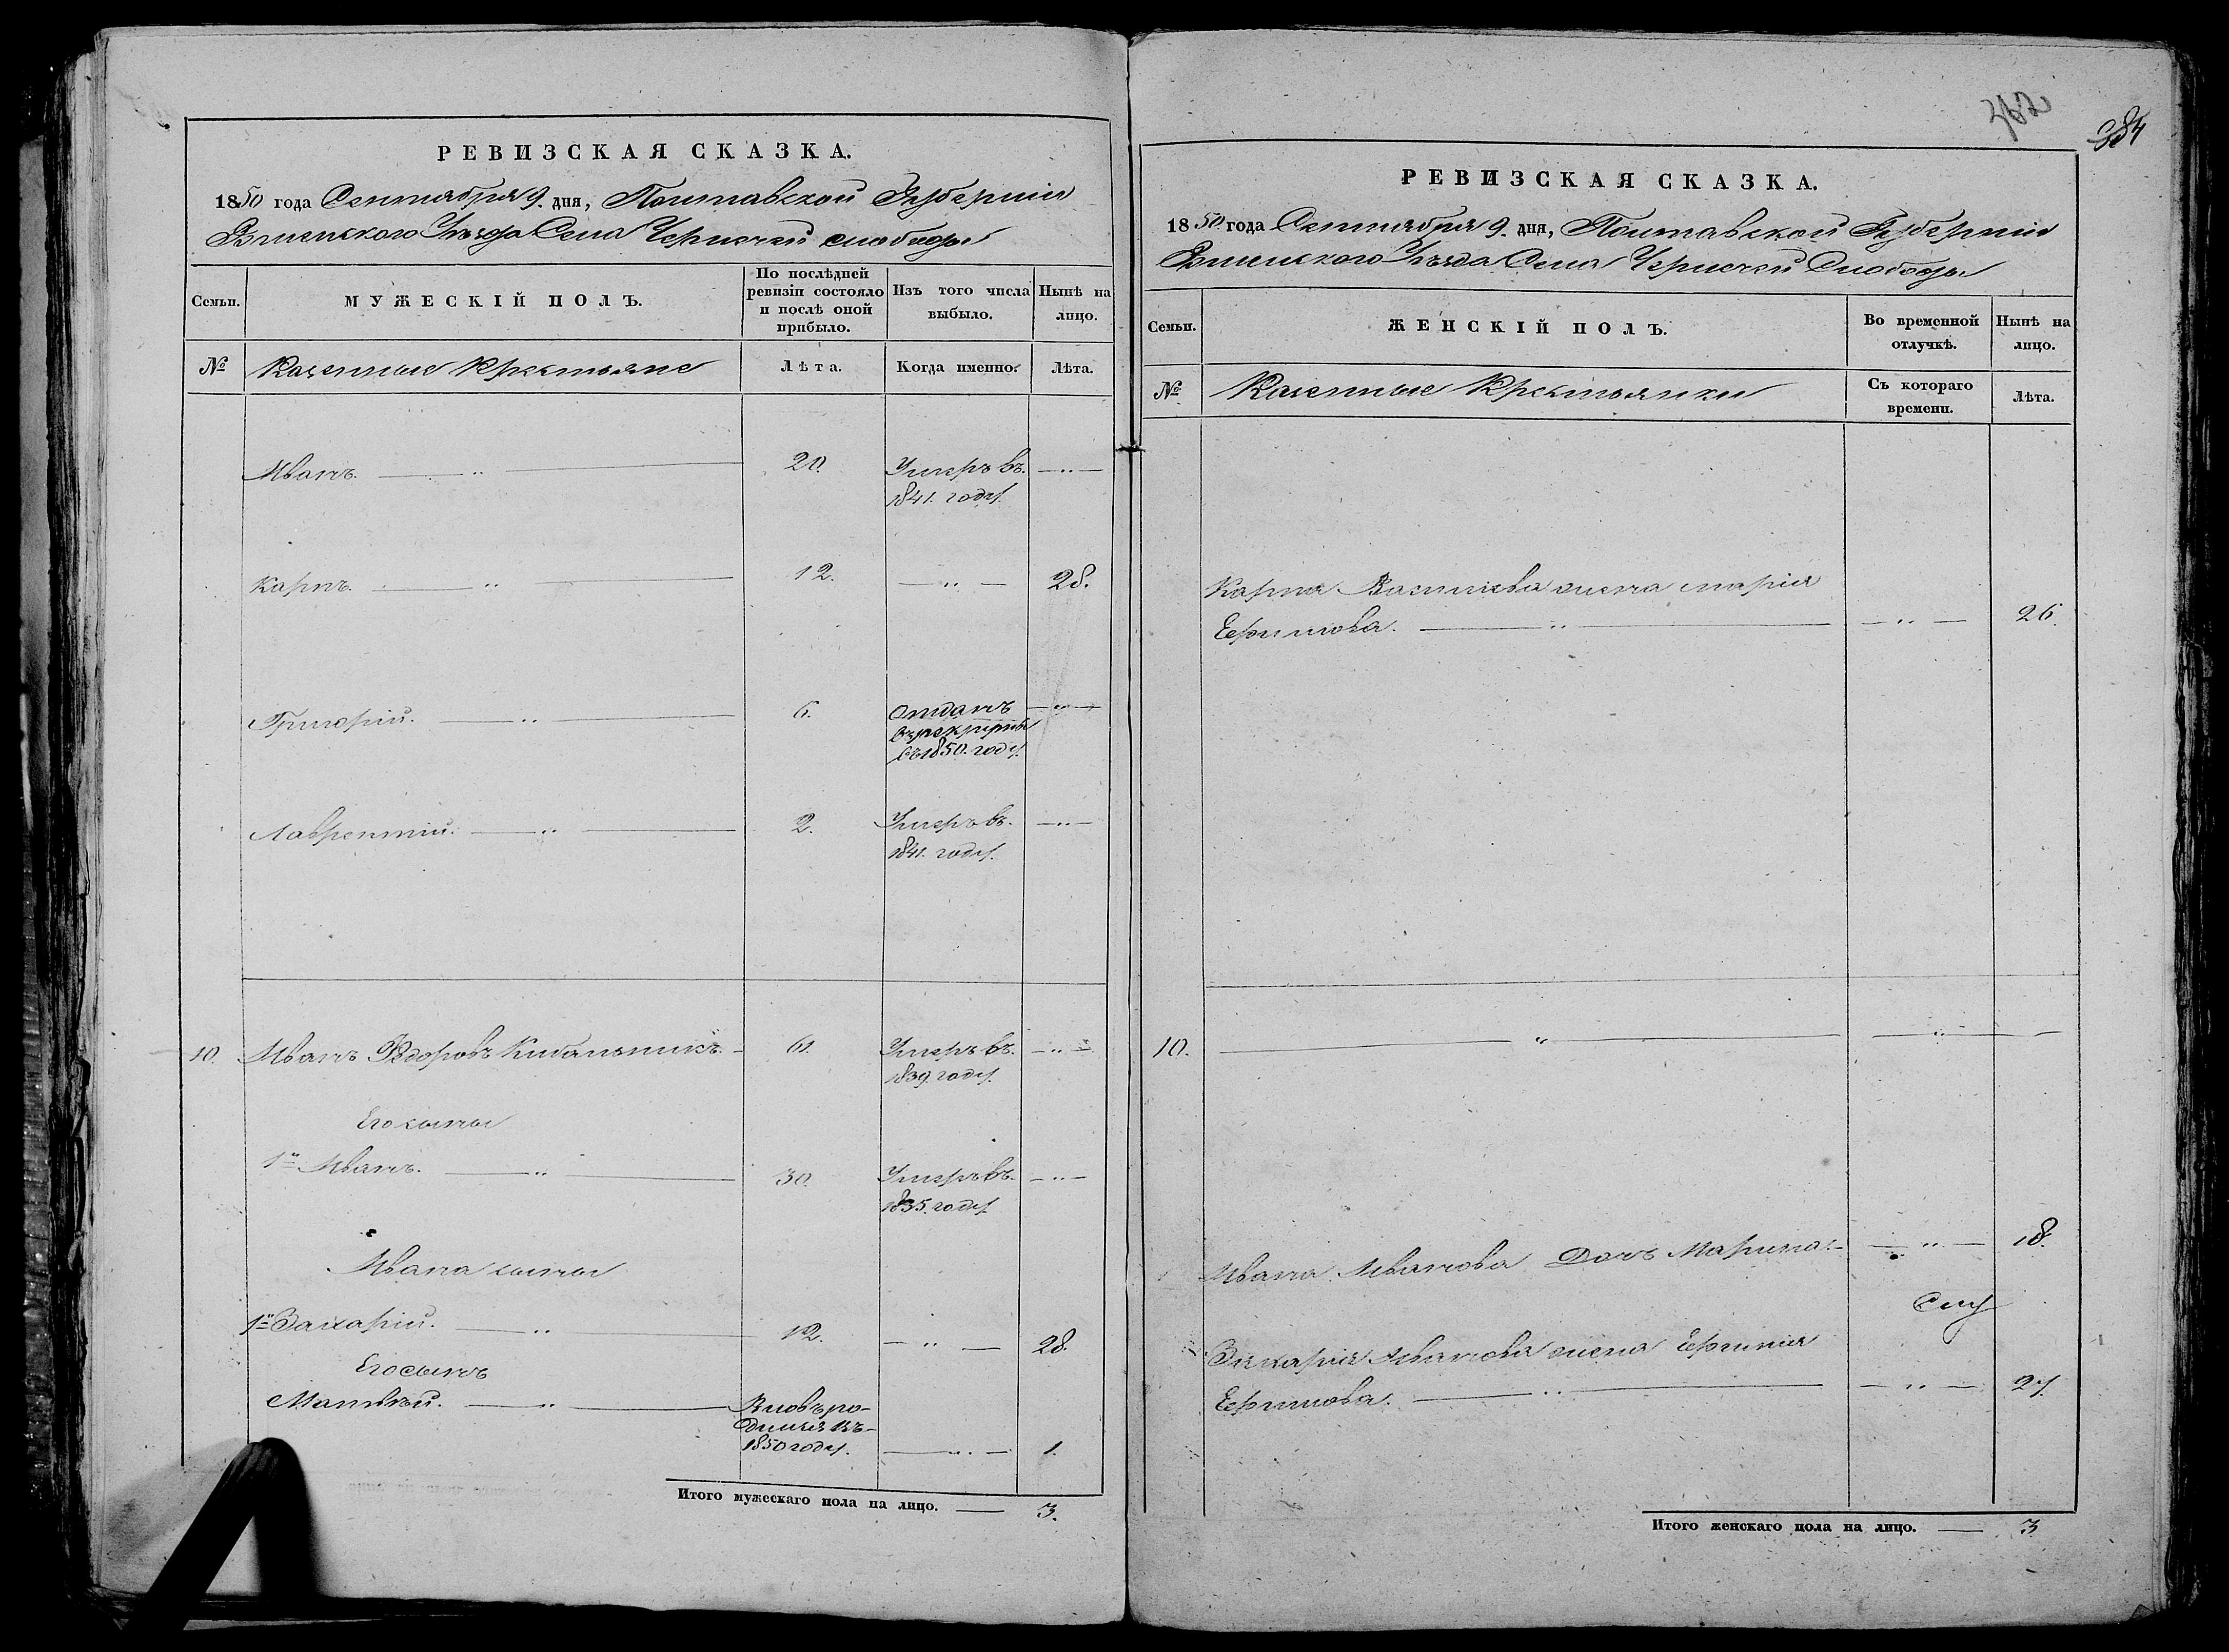 РЕВИЗСКАЯ СКАЗКА.
1850 года Сентября 9. дня, Полтавской Губернии
Роменского Уѣзда Села Чернечей слободы
Семьи.
МУЖЕСКІЙ ПОЛЪ.
По послѣдней ревизіи состояло и послѣ оной прибыло.
Изъ того числа выбыло.
Нынѣ на лицо.
№
Казенные Крестьяне
Лѣта.
Когда именно.
Лѣта.
Иванъ. — " — 20. Умеръ въ — " —
1841. году.
Карпъ. — " — 12. — " — 28.
Григорій. — " — 6. Отданъ — " —
въ рекруты
въ 1850. году.
Лаврентій. — " — 2. Умеръ въ. — " —
1841. году.
10. Иванъ Ѳедоровъ Кибальникъ. — 61. Умеръ въ. — " —
1839. году.
Его сыны
1й Иванъ. — " — 30. Умеръ въ. — " —
1835. году.
Ивана сыны
1й Захарій. — " — 12. — " — 28.
Его сынъ
Матвѣй. — " — Вновь ро-
дился въ
1850 году. — " — 1.
Итого мужескаго пола на лицо. — 3.
384
РЕВИЗСКАЯ СКАЗКА.
1850 года Сентября 9. дня, Полтавской Губерніи
Роменского Уѣзда Села Чернечей Слободы
Семьи.
ЖЕНСКІЙ ПОЛЪ.
Во временной отлучкѣ.
Нынѣ на лицо.
№
Казенные Крестьянки
Съ котораго времени.
Лѣта.
Карпа Васильева жена Марія
Ефимова. — " — — " — 26.
10. — " — — " —
Ивана Иванова Дочь Марина. — — " — 18.
Захарія Иванова жена Ефимія
Ефимова. — " — — " — 27.
Итого женскаго пола на лицо. — 3